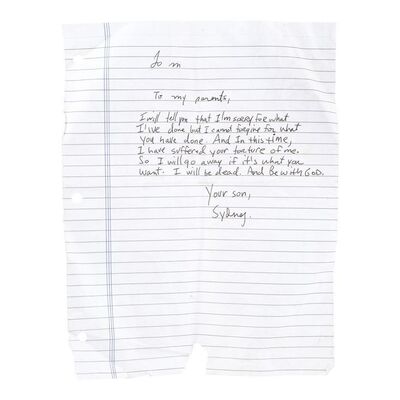 To m
To my parents,
I will tell you that I'm sorry for what
I'ive done but I cannot forgive for what
you have done. And In this time,
I have suffered your torture of me.
So I will go away if it's what you
want. I will be dead. And Be with GOD.
Your son,
Sydney.